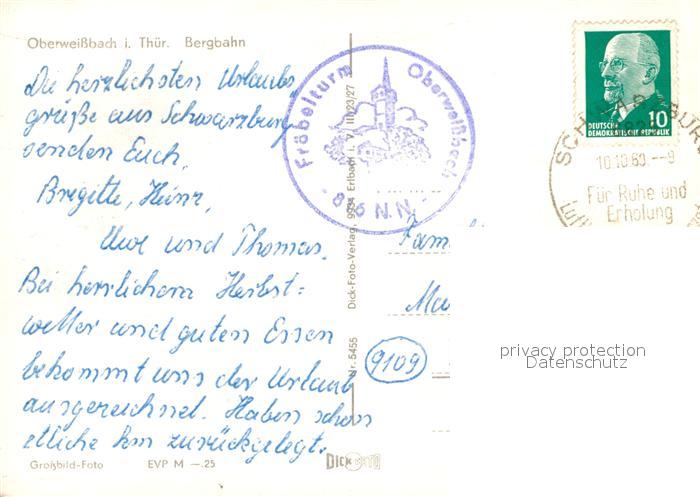 Oberweißbach i. Thür. Bergbahn
Die herzlichsten Urlaubs
grüße aus Schwarzburg
senden Euch,
Brigitte, Heinz,
Uwe und Thomas.
Bei herrlichem Herbst=
wetter und guten Essen
bekommt uns der Urlaub
ausgezeichnet. Haben schon
etliche km zurückgelegt.
Großbild-Foto EVP M —.25
Fröbelturm Oberweißbach
N.N.
Dick-Foto-Verlag, 9934 Erlbach i. V. III/23/27
Nr. 5455
DICK FOTO
Fam
(9109)
10
DEUTSCHE
DEMOKRATISCHE REPUBLIK
SCHWARZBURG
10.10.69.--9
Für Ruhe und
Erholung
privacy protection
Datenschutz